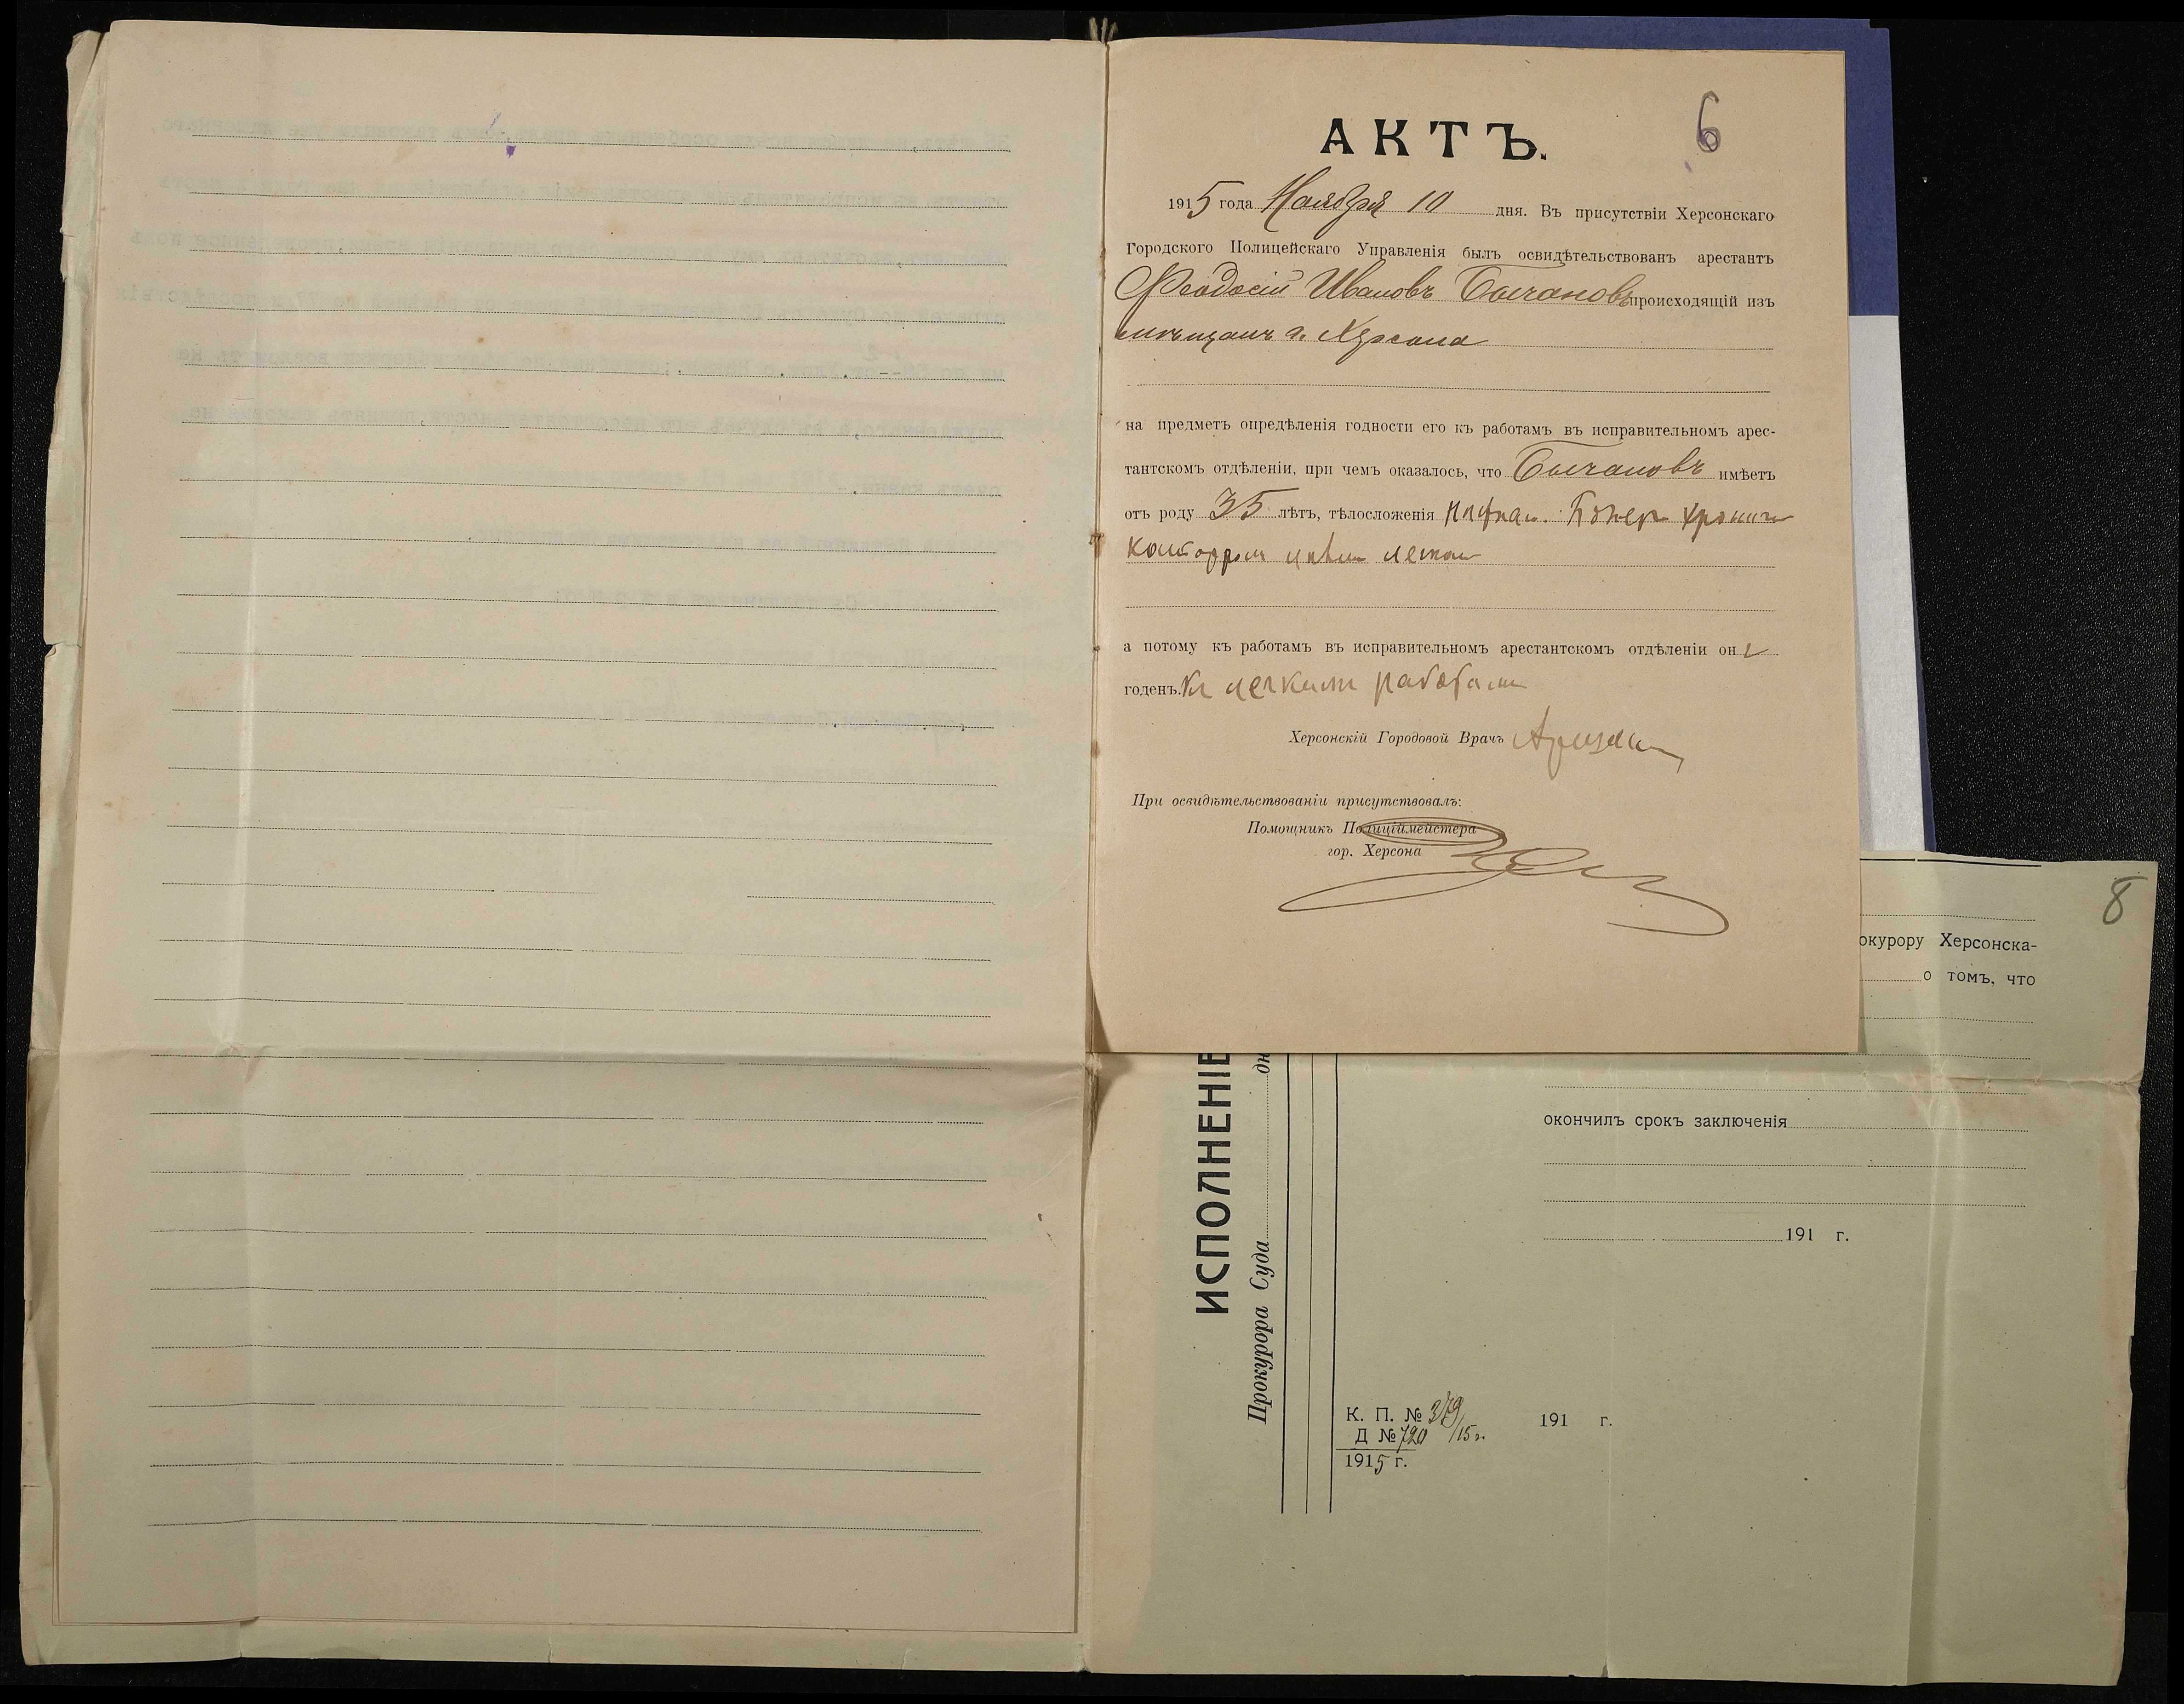 АКТЪ.
6
1915 года Ноября 10 дня. Въ присутствіи Херсонскаго
Городского Полицейскаго Управленія былъ освидѣтельствованъ арестантъ
Феодосій Ивановъ Бычановъ происходящій изъ
мѣщанъ г. Херсона
на предметъ опредѣленія годности его къ работамъ въ исправительномъ арес-
тантскомъ отдѣленіи, при чемъ оказалось, что Бычановъ имѣетъ
отъ роду 35 лѣтъ, тѣлосложенія
а потому къ работамъ въ исправительномъ арестантскомъ отдѣленіи онъ
годенъ. къ легкимъ работамъ
Херсонскій Городовой Врачъ
При освидѣтельствованіи присутствовалъ:
Помощникъ Полиціймейстера
гор. Херсона
8
окурору Херсонска-
о томъ, что
окончилъ срокъ заключенія
191 г.
ИСПОЛНЕНІЕ
Прокурора Суда дн
К. П. № 379
Д № 720 /15 г.
1915 г.
191 г.